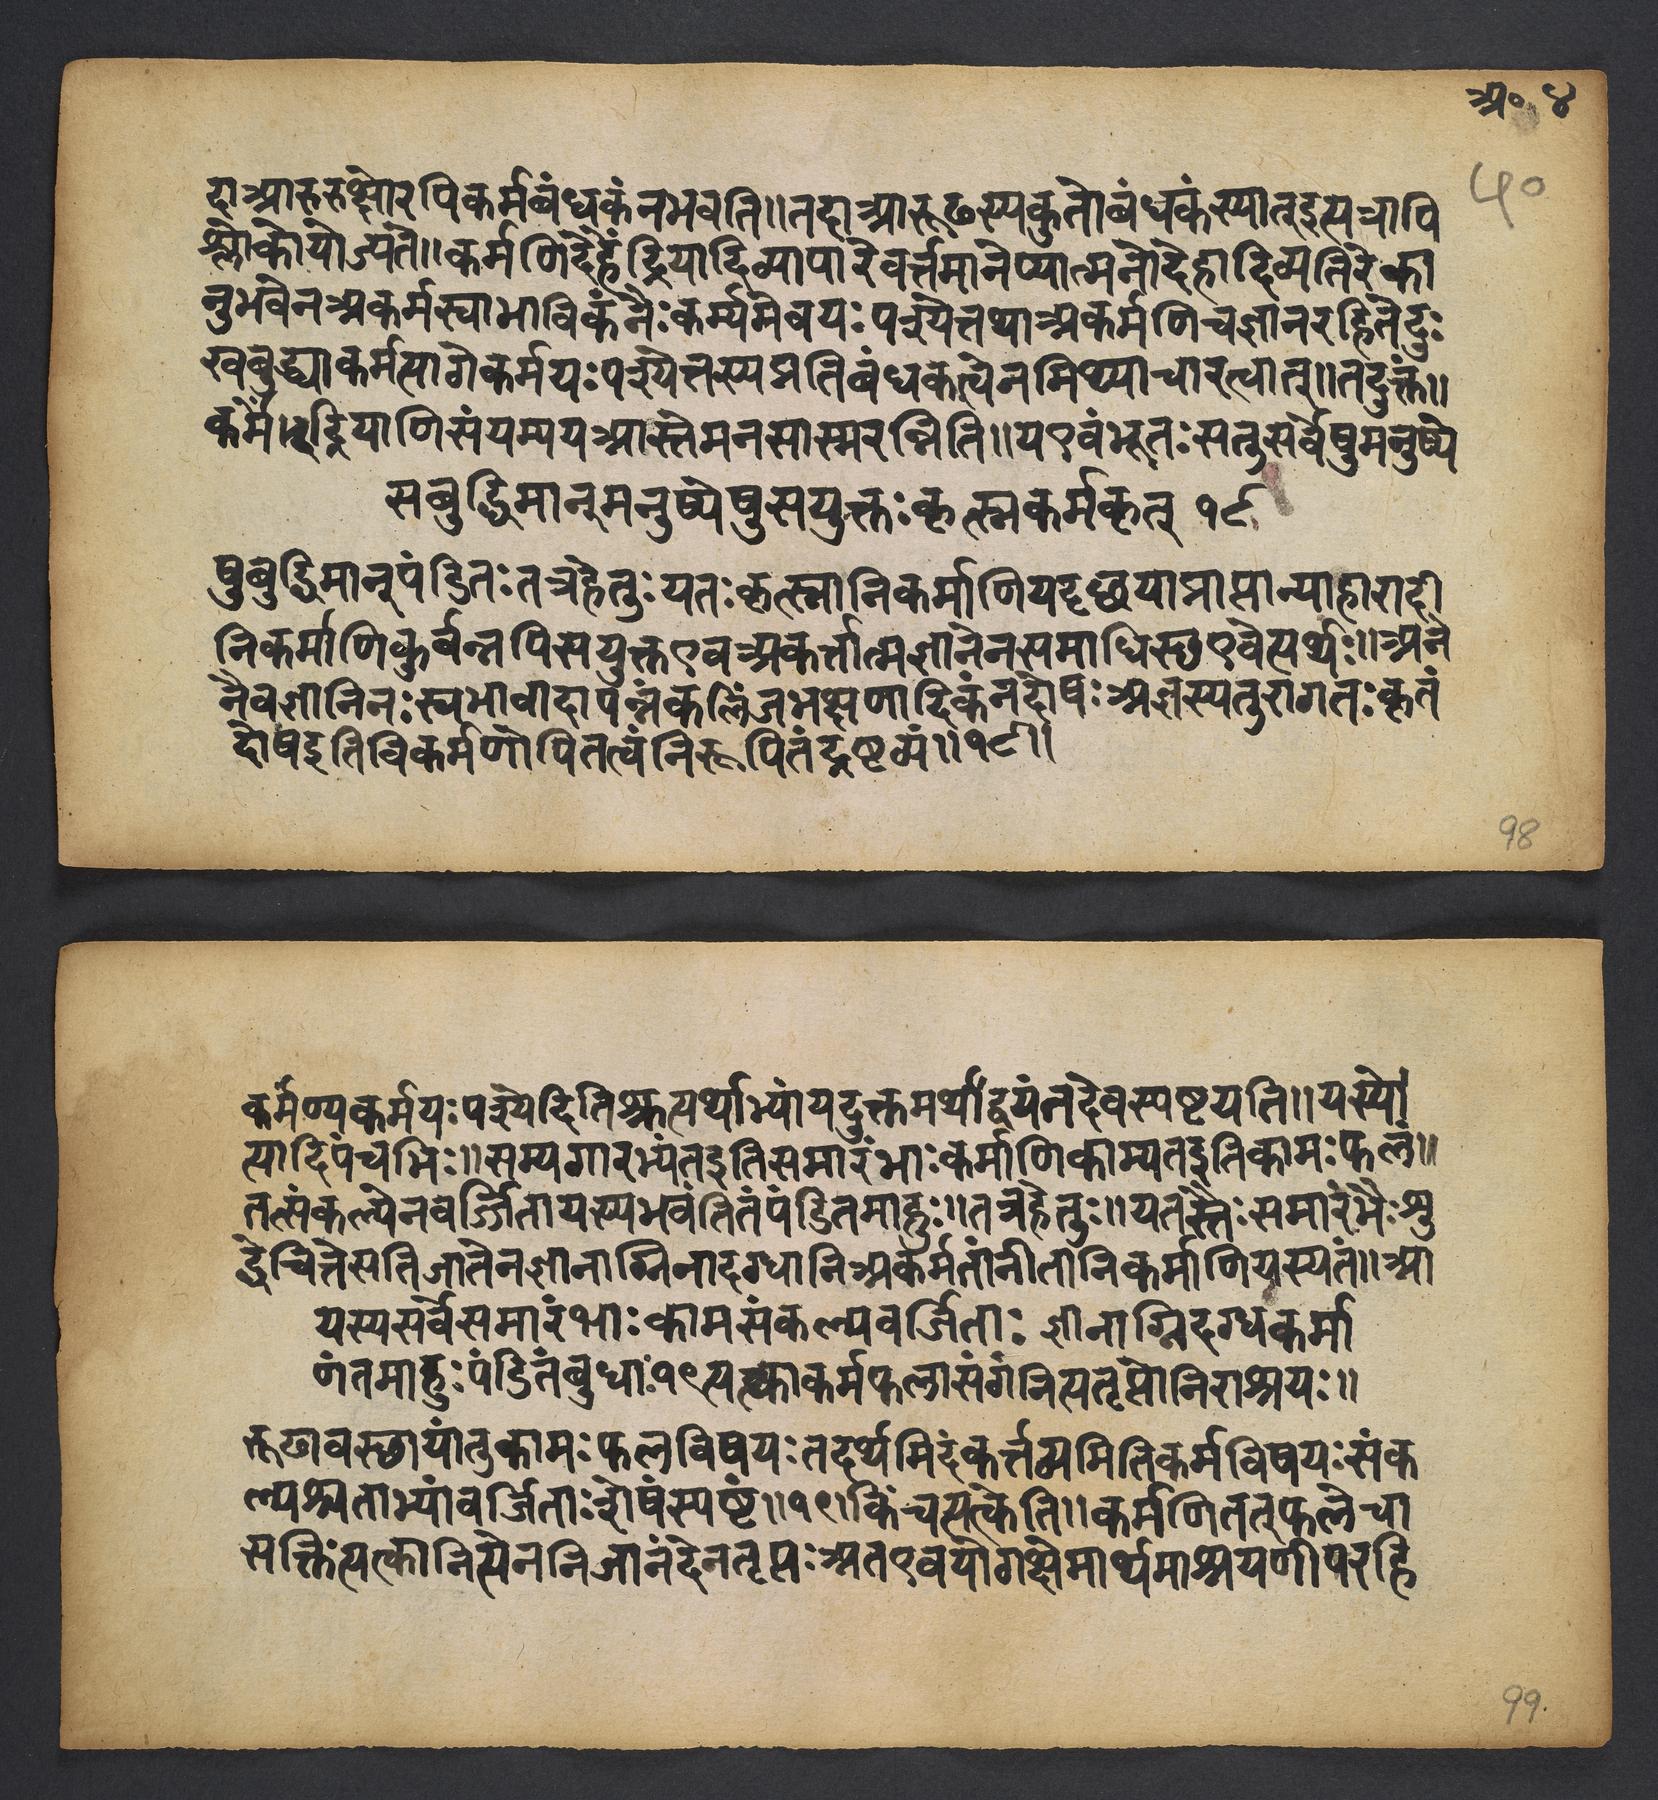 अ॰ ४
५०
दाआरुरुक्षोरपिकर्मबंधकंनभवति॥तदाआरूढस्यकुतोबंधकंस्यात्इत्यत्रापि
श्लोकोयोज्यते॥कर्मणिदेहेंद्रियादिव्यापारेवर्त्तमानेप्यात्मनोदेहादिव्यतिरेका
नुभवेनअकर्मस्वाभाविकंनैःकर्म्यमेवयःपश्येत्तथाअकर्मणिचज्ञानरहितेदुः
खबुद्ध्याकर्मत्यागेकर्मयःपश्येत्तस्यप्रतिबंधकत्वेनमिथ्याचारत्वात्॥तदुक्तं॥
कर्मेंद्रियाणिसंयम्ययआस्तेमनसास्मरन्निति॥यएवंभूतःसतुसर्वेषुमनुष्ये
सबुद्धिमान्मनुष्येषुसयुक्तःकृत्स्नकर्मकृत् १८
षुबुद्धिमान्पंडितःतत्रहेतुःयतःकृत्स्नानिकर्माणियदृछयाप्राप्तान्याहारादी
निकर्माणिकुर्वन्नपिसयुक्तएवअकर्त्तात्मज्ञानेनसमाधिस्छएवेत्यर्थः॥अने
नैवज्ञानिनःस्वभावादापन्नंकलिंजभक्षणादिकंनदोषःअज्ञस्यतुरागतःकृतं
दोषइतिविकर्मणोपितत्वंनिरूपितंद्रष्टव्यं॥१८॥
98
कर्मण्यकर्मयःपश्येदितिश्रुत्यर्थाभ्यांयदुक्तमर्थद्वयंतदेवस्पष्टयति॥यस्ये
त्यादिपंचभिः॥सम्यगारभ्यंतइतिसमारंभाःकर्माणिकाम्यतइतिकामःफलं॥
तत्संकल्पेनवर्ज्जितायस्यभवंतितंपंडितमाहुः॥तत्रहेतुः॥यतस्तैःसमारंभैःशु
द्धेचित्तेसतिजातेनज्ञानाग्निनादग्धानिअकर्मतांनीतानिकर्माणियस्यतं॥आ
यस्यसर्वेसमारंभाःकामसंकल्पवर्ज्जिताः ज्ञानाग्निदग्धकर्मा
णंतमाहुःपंडितंबुधाः१९त्यत्क्वाकर्मफलासंगंनित्यतृप्तोनिराश्रयः॥
रूढावस्छायांतुकामःफलविषयःतदर्थमिदंकर्त्तव्यमितिकर्मविषयःसंक
ल्पश्चताभ्यांवर्जिताःशेषंस्पष्टं॥१९।किंचत्यत्केति॥कर्मणितत्फलेचा
सक्तिंत्यत्क्वानित्येननिजानंदेनतृप्तःअतएवयोगक्षेमार्थमाश्रयणीयरहि
99.